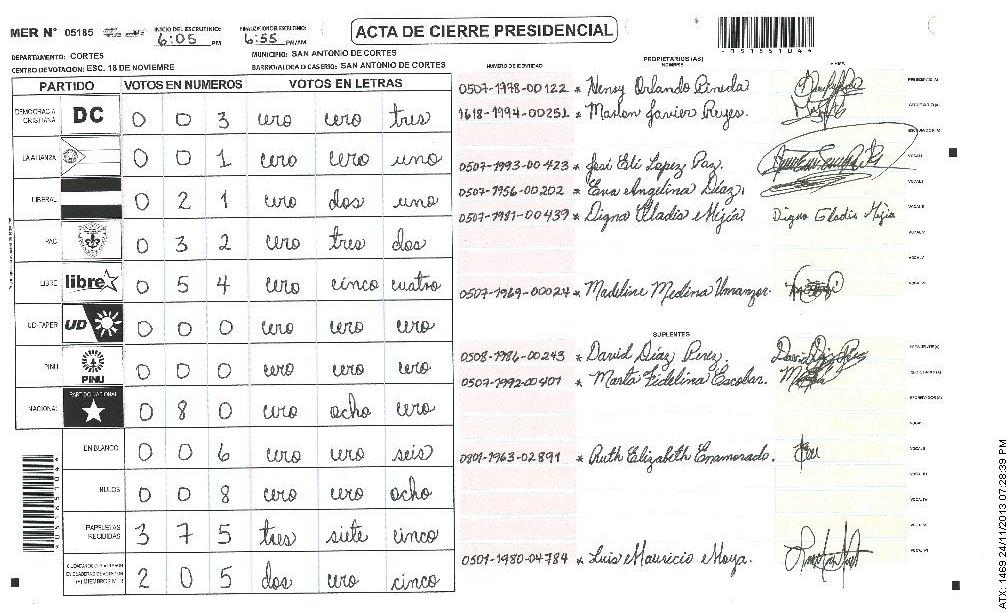 MER N° 05185
INICIO DEL ESCRUTINIO: 6:05 PM
FINALIZACION DEL ESCRUTINIO: 6:55 PM/AM
ACTA DE CIERRE PRESIDENCIAL
DEPARTAMENTO: CORTES
MUNICIPIO: SAN ANTONIO DE CORTES
CENTRO DE VOTACION: ESC. 18 DE NOVIEMRE
BARRIO/ALDEA O CASERIO: SAN ANTONIO DE CORTES
PARTIDO VOTOS EN NUMEROS VOTOS EN LETRAS
DEMOCRACIA CRISTIANA DC 0 0 3 cero cero tres
LA ALIANZA 0 0 1 cero cero uno
LIBERAL 0 2 1 cero dos uno
PAC 0 3 2 cero tres dos
LIBRE libre 0 5 4 cero cinco cuatro
UD-FAPER UD 0 0 0 cero cero cero
PINU PINU 0 0 0 cero cero cero
NACIONAL PARTIDO NACIONAL 0 8 0 cero ocho cero
EN BLANCO 0 0 6 cero cero seis
NULOS 0 0 8 cero cero ocho
PAPELETAS RECIBIDAS 3 7 5 tres siete cinco
2 0 5 dos cero cinco
NUMERO DE IDENTIDAD PROPIETARIOS (AS) NOMBRE FIRMA
0507-1978-00122 * Neney Orlando Pineda
1618-1994-00251 * Marlon Javier Reyes.
0507-1993-00423 * José Eli Lopez Paz.
0507-1956-00202 * Eva Angelina Díaz.
0507-1981-00439 * Digna Gladis Mejía Digna Gladis Mejia
0507-1969-00024 * Madeline Medina Umanzor.
SUPLENTES
0508-1986-00243 * David Díaz Perez.
0507-1992-00401 * Marta Fidelina Escobar.
0801-1963-02891 * Ruth Elizabeth Enamorado.
0501-1980-04784 * Luis Mauricio Moya.
ATX: 1469 24/11/2013 07:28:39 PM